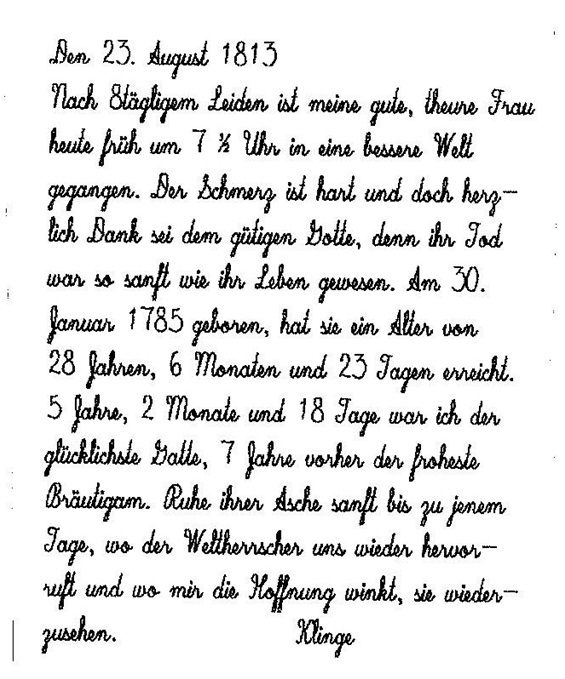 Den 23. August 1813
Nach 8tägligem Leiden ist meine gute, theure Frau
heute früh um 7 ½ Uhr in eine bessere Welt
gegangen. Der Schmerz ist hart und doch herz-
lich Dank sei dem gütigen Gotte, denn ihr Tod
war so sanft wie ihr Leben gewesen. Am 30.
Januar 1785 geboren, hat sie ein Alter von
28 Jahren, 6 Monaten und 23 Tagen erreicht.
5 Jahre, 2 Monate und 18 Tage war ich der
glücklichste Gatte, 7 Jahre vorher der froheste
Bräutigam. Ruhe ihrer Asche sanft bis zu jenem
Tage, wo der Weltherrscher uns wieder hervor-
ruft und wo mir die Hoffnung winkt, sie wieder-
zusehen. Klinge